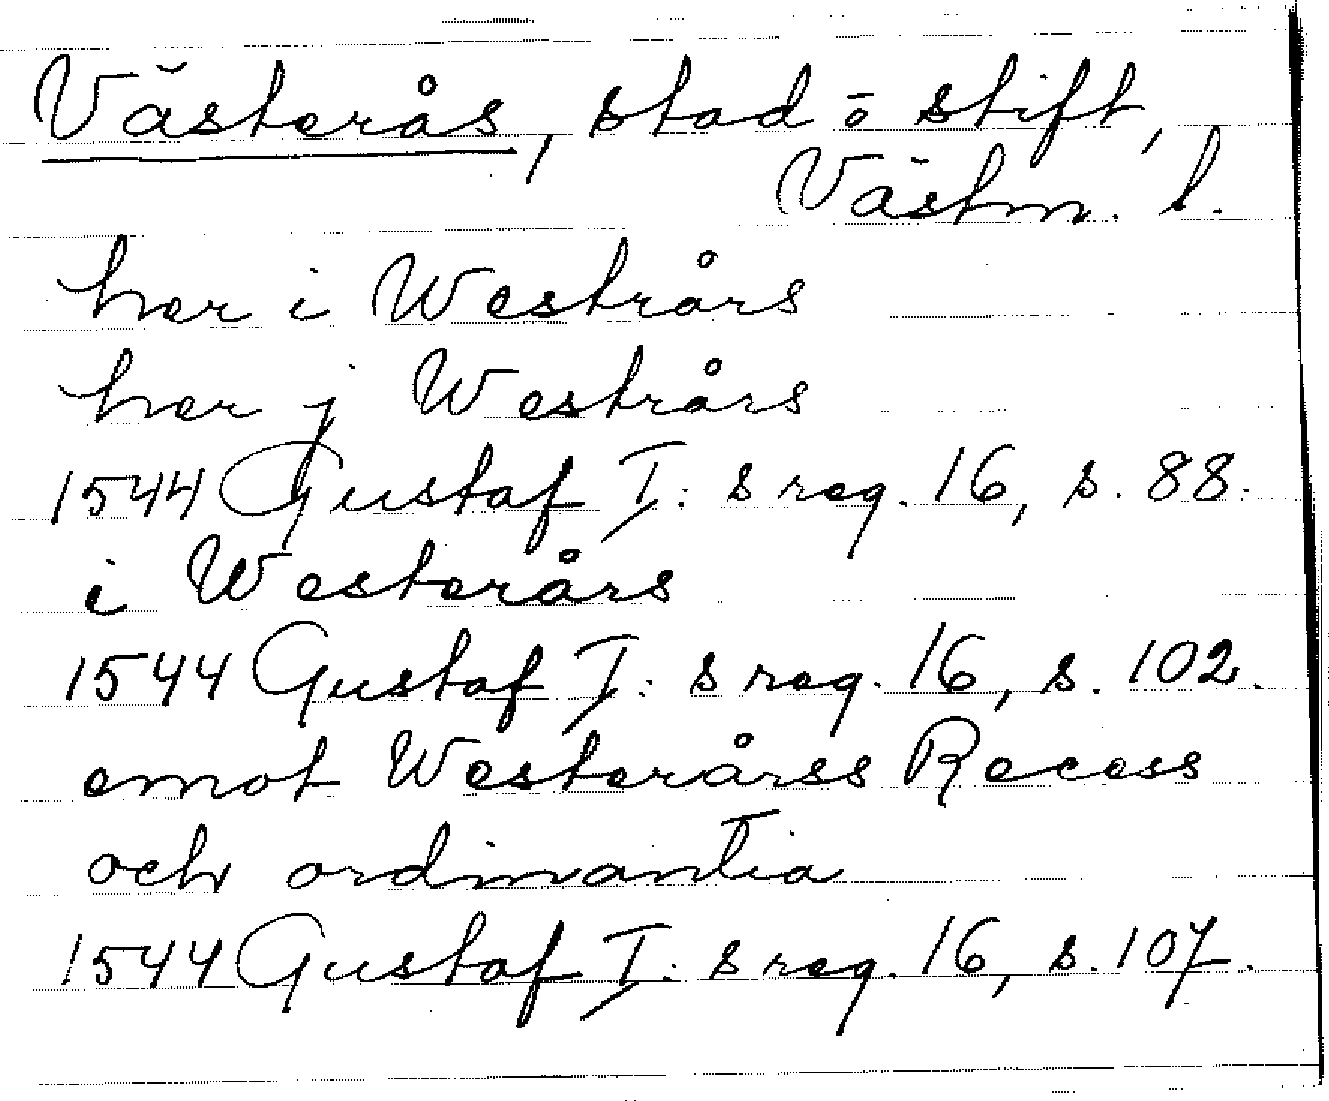 Västerås, stad ō stift,
Västm. l.
her i Westrårs
her j Westrårs
1544 Gustaf I: s reg. 16, s. 88.
i Westerårs
1544 Gustaf I: s reg. 16, s. 102.
emot Westerårss Recess
och ordinantia
1544 Gustaf I: s reg. 16, s. 107.